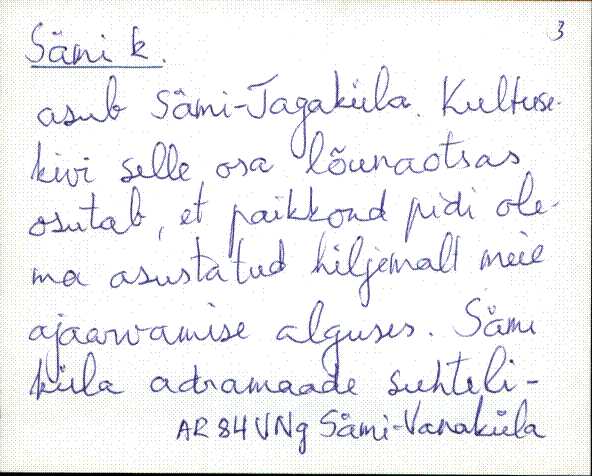 3
Sämi k.
asub Sämi-Tagaküla. Kultuse-
kivi selle osa lõunaotsas
osutab, et paikkond pidi ole-
ma asustatud hiljemalt meie
ajaarvamise alguses. Sämi
küla adramaade suhteli-
AR 84 VNg Sämi-Vanaküla